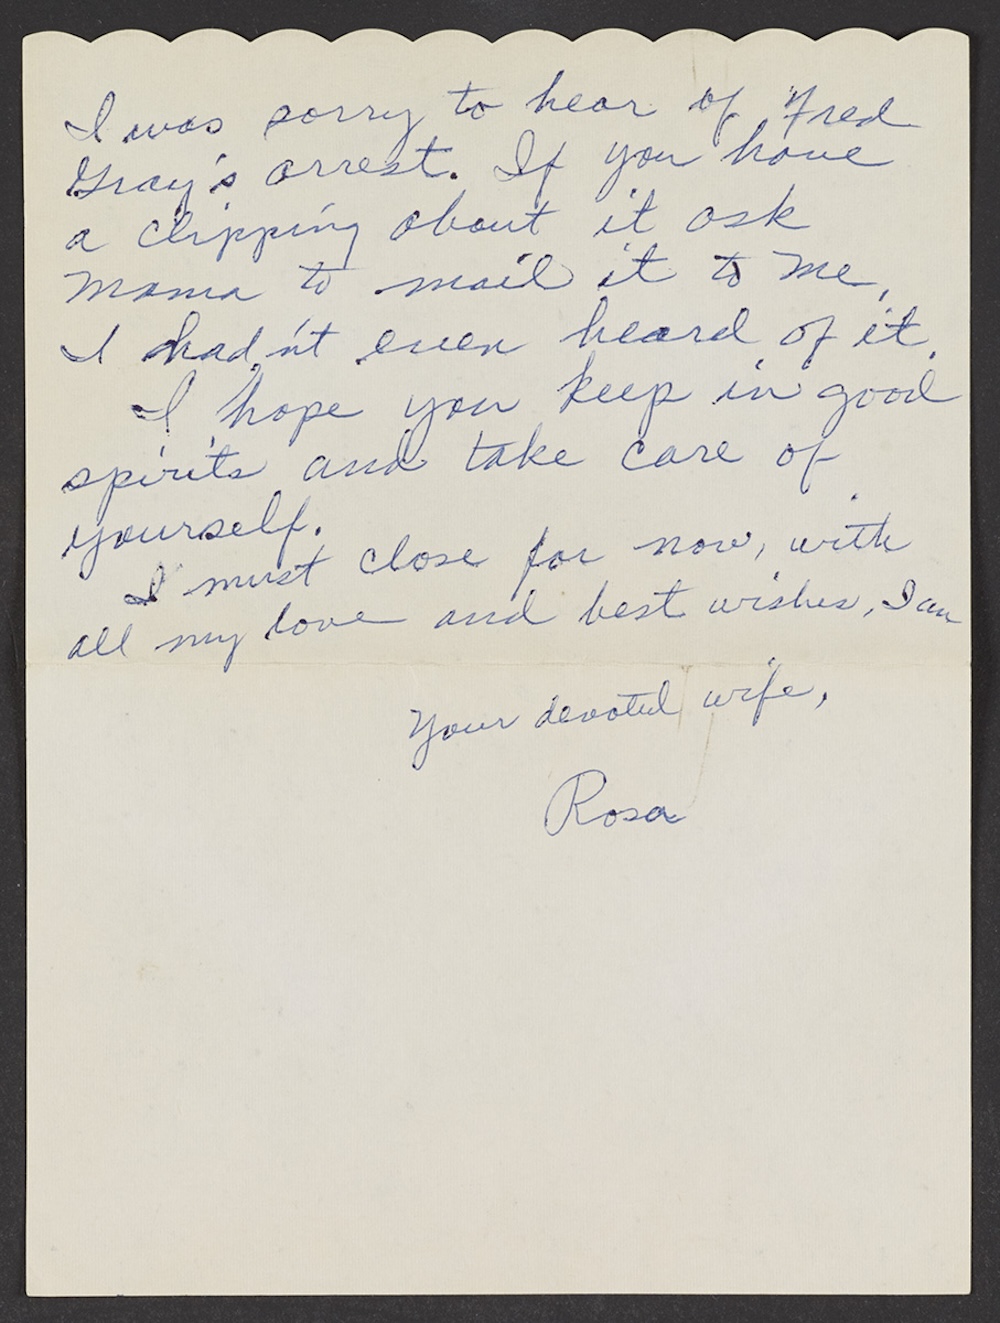 I was sorry to hear of Fred
Gray's arrest. If you have
a clipping about it ask
Mama to mail it to me,
I had,n't even heard of it.
I hope you keep in good
spirits and take care of
yourself.
I must close for now, with
all my love and best wishes, I am
Your devoted wife,
Rosa